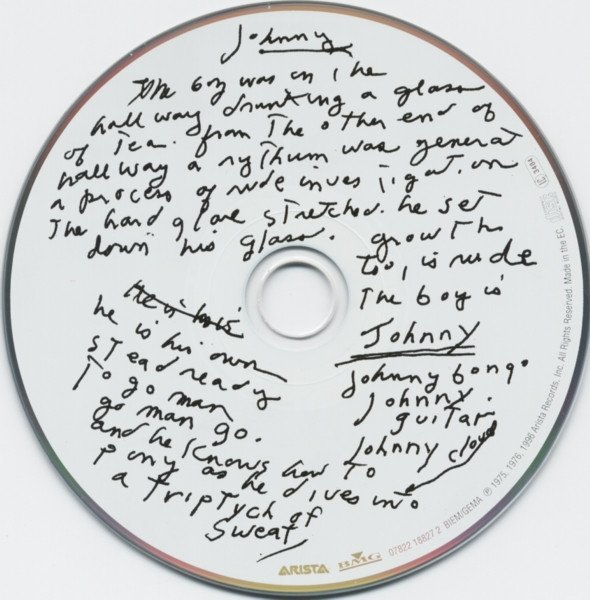 Johnny
The boy was in The
hallway drinking a glass
of Tea. from The other end of
hallway a rythum was generat
a process of rude investigation
The stretched. he set
down his glass. growth
Too, is rude
The boy is
Johnny
He is his
he is his own
stead ready
To go man
go man go.
and he knows how To
pony as he dives into
a Triptych of
sweat
Johnny bongo
Johnny.
guitar
Johnny cloud
ARISTA BMG 07822 18827 2 BIEM/GEMA ℗ 1975, 1976, 1996 Arista Records, Inc. All Rights Reserved. Made in the EC.
LC 3484